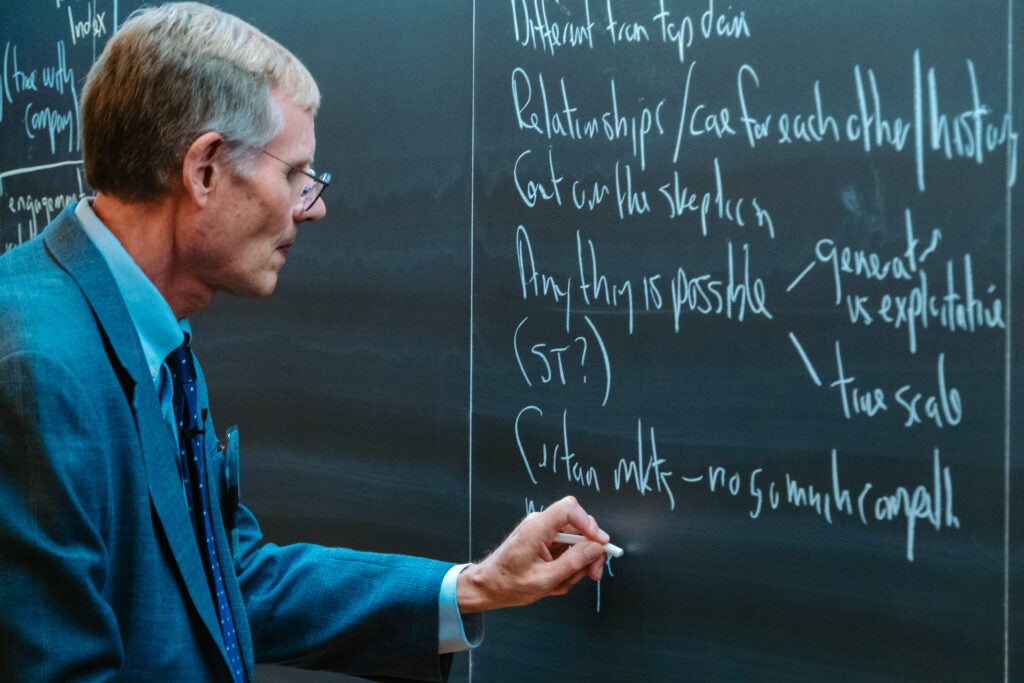 Index
(time with
company)
engagement
Different from top down
Relationships / care for each other / history
Cont un the skepticism
Anything is possible
generat
vs exploitative
(ST?)
time scale
Certain mkts - no so much compet